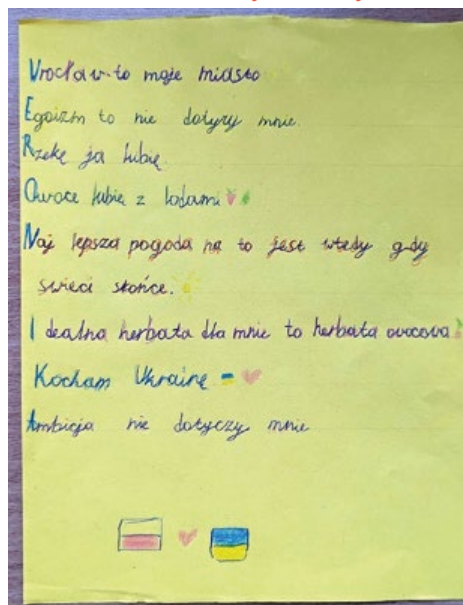 Vrocław-to moje miasto
Egoizm to nie dotyzy mnie.
Rzekę ja lubię.
Owoce lubię z lodami
Naj lepsza pogoda na to jest wtedy gdy
swieci słońce.
Idealna herbata dla mnie to herbata owocova
Kocham Ukrainę
Ambicja nie dotyczy mnie